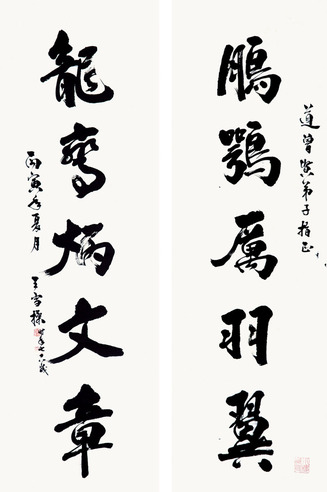 道曾賢弟子指正
鵬鶚厲羽翼
龍鸞炳文章
丙寅年夏月